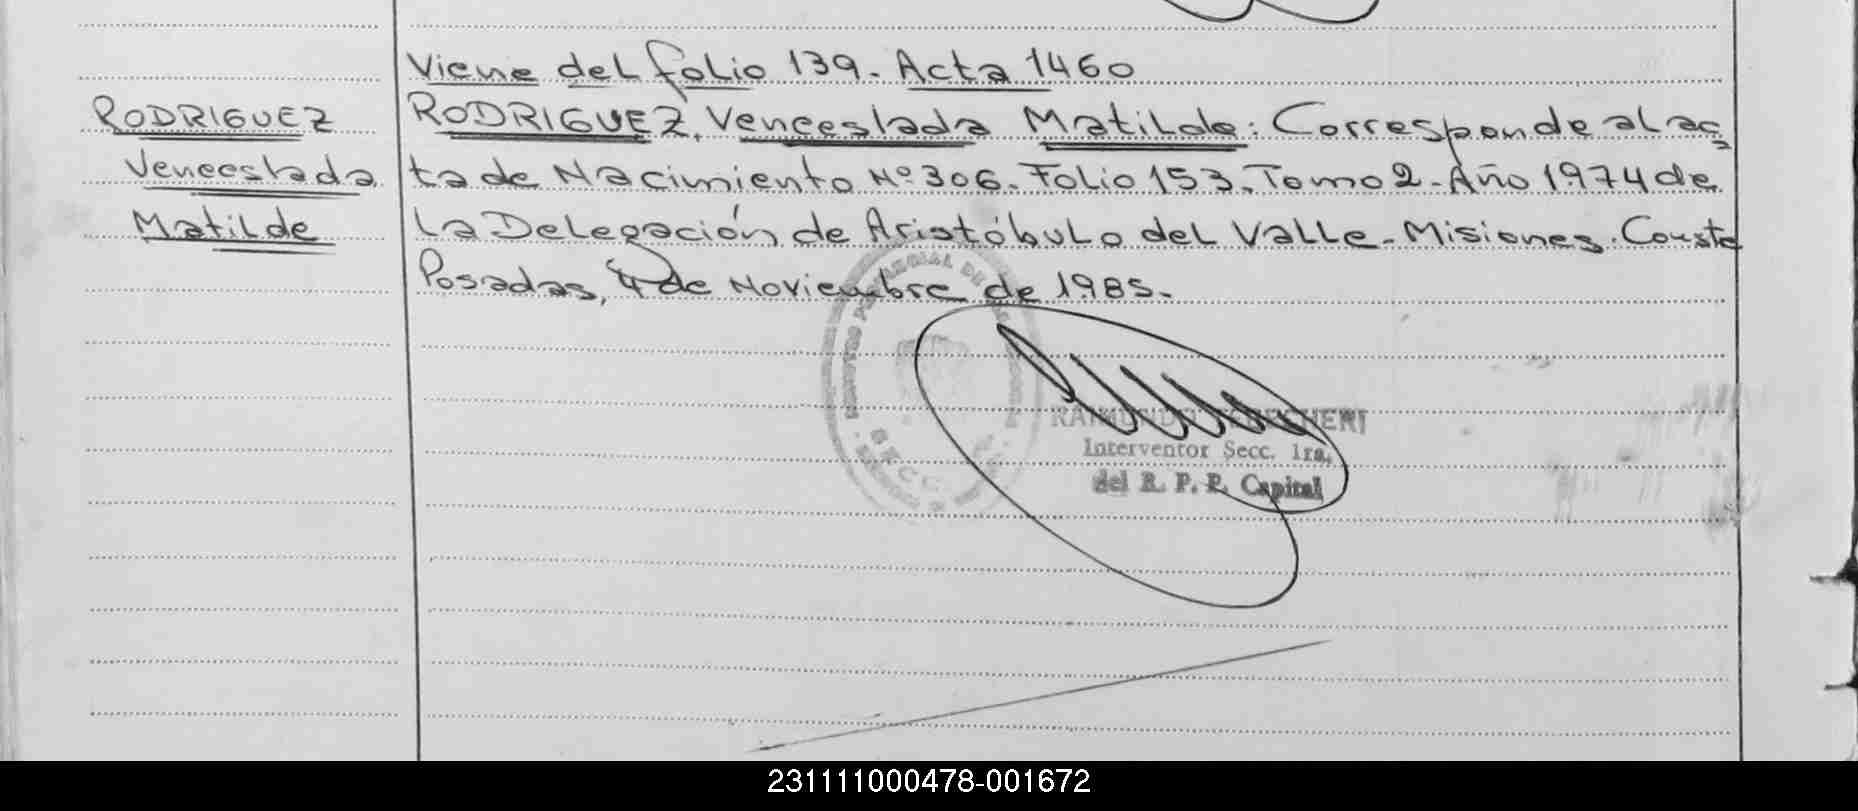 Viene del folio 139. Acta 1460
RODRIGUEZ
Venceslada
Matilde
RODRIGUEZ, Venceslada Matilde: Corresponde al ac
ta de Nacimiento Nº 306. Folio 153. Tomo 2. Año 1974 de
La Delegación de Aristóbulo del Valle. Misiones. Conste
Posadas, 4 de Noviembre de 1985.
RAIMUNDO
Interventor Secc. 1ra.
del R. P. P. Capital
231111000478-001672